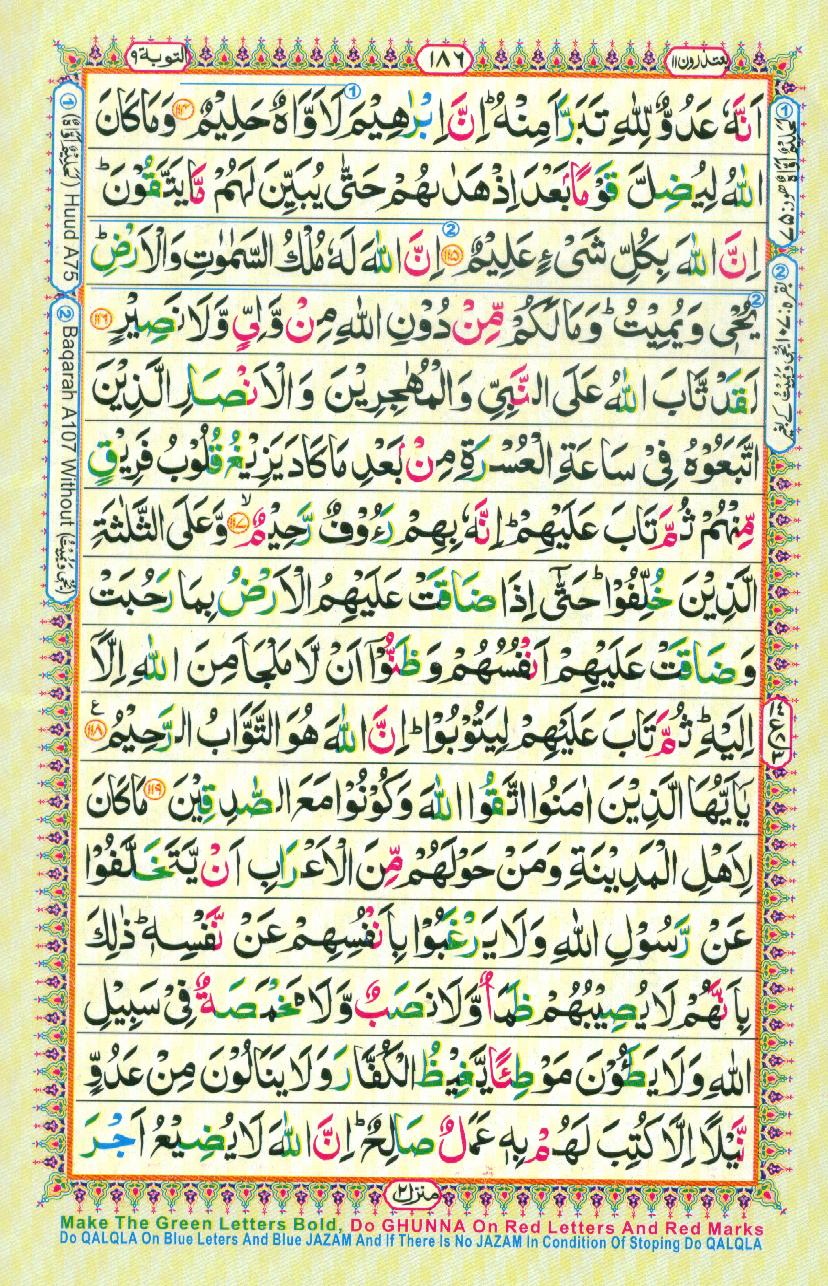 يعتذرون ١١
١٨٦
التوبة ٩
اَنَّهٗ عَدُوٌّ لِّلّٰهِ تَبَرَّاَ مِنْهُ ؕ اِنَّ اِبْرٰهِيْمَ لَاَوَّاهٌ حَلِيْمٌ ﴿۱۱۴﴾ وَمَا كَانَ
اللّٰهُ لِيُضِلَّ قَوْمًۢا بَعْدَ اِذْ هَدٰىهُمْ حَتّٰى يُبَيِّنَ لَهُمْ مَّا يَتَّقُوْنَ ؕ
اِنَّ اللّٰهَ بِكُلِّ شَىْءٍ عَلِيْمٌ ﴿۱۱۵﴾ اِنَّ اللّٰهَ لَهٗ مُلْكُ السَّمٰوٰتِ وَالْاَرْضِ ؕ
يُحْىٖ وَيُمِيْتُ ؕ وَمَا لَكُمْ مِّنْ دُوْنِ اللّٰهِ مِنْ وَّلِىٍّ وَّلَا نَصِيْرٍ ﴿۱۱۶﴾
لَقَدْ تَّابَ اللّٰهُ عَلَى النَّبِىِّ وَالْمُهٰجِرِيْنَ وَالْاَنْصَارِ الَّذِيْنَ
اتَّبَعُوْهُ فِىْ سَاعَةِ الْعُسْرَةِ مِنْۢ بَعْدِ مَا كَادَ يَزِيْغُ قُلُوْبُ فَرِيْقٍ
مِّنْهُمْ ثُمَّ تَابَ عَلَيْهِمْ ؕ اِنَّهٗ بِهِمْ رَءُوْفٌ رَّحِيْمٌ ۙ﴿۱۱۷﴾ وَّعَلَى الثَّلٰثَةِ
الَّذِيْنَ خُلِّفُوْا ؕ حَتّٰۤى اِذَا ضَاقَتْ عَلَيْهِمُ الْاَرْضُ بِمَا رَحُبَتْ
وَضَاقَتْ عَلَيْهِمْ اَنْفُسُهُمْ وَظَنُّوْۤا اَنْ لَّا مَلْجَاَ مِنَ اللّٰهِ اِلَّاۤ
اِلَيْهِ ؕ ثُمَّ تَابَ عَلَيْهِمْ لِيَتُوْبُوْا ؕ اِنَّ اللّٰهَ هُوَ التَّوَّابُ الرَّحِيْمُ ﴿۱۱۸﴾ ع
يٰۤاَيُّهَا الَّذِيْنَ اٰمَنُوا اتَّقُوا اللّٰهَ وَكُوْنُوْا مَعَ الصّٰدِقِيْنَ ﴿۱۱۹﴾ مَا كَانَ
لِاَهْلِ الْمَدِيْنَةِ وَمَنْ حَوْلَهُمْ مِّنَ الْاَعْرَابِ اَنْ يَّتَخَلَّفُوْا
عَنْ رَّسُوْلِ اللّٰهِ وَلَا يَرْغَبُوْا بِاَنْفُسِهِمْ عَنْ نَّفْسِهٖ ؕ ذٰلِكَ
بِاَنَّهُمْ لَا يُصِيْبُهُمْ ظَمَاٌ وَّلَا نَصَبٌ وَّلَا مَخْمَصَةٌ فِىْ سَبِيْلِ
اللّٰهِ وَلَا يَطَـُٔوْنَ مَوْطِئًا يَّغِيْظُ الْكُفَّارَ وَلَا يَنَالُوْنَ مِنْ عَدُوٍّ
نَّيْلًا اِلَّا كُتِبَ لَهُمْ بِهٖ عَمَلٌ صَالِحٌ ؕ اِنَّ اللّٰهَ لَا يُضِيْعُ اَجْرَ
منزل ٢
① (لَحَلِيْمٌ اَوَّاهٌ) Huud A75
② Baqarah A107 Without (يُحْىٖ وَيُمِيْتُ)
① لَحَلِيْمٌ اَوَّاهٌ هود: ٧٥
② بقرہ: ١٠٧ يُحْىٖ وَيُمِيْتُ کے بغیر
Make The Green Letters Bold, Do GHUNNA On Red Letters And Red Marks
Do QALQLA On Blue Leters And Blue JAZAM And If There Is No JAZAM In Condition Of Stoping Do QALQLA